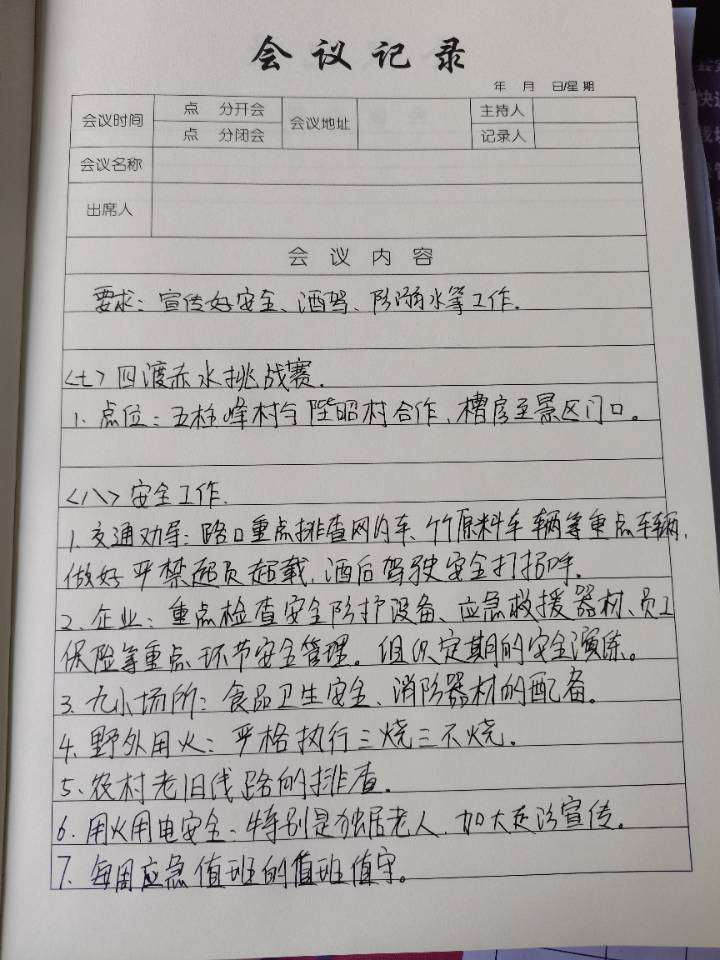 会议记录
年 月 日/星期
会议时间 点 分开会 会议地址 主持人
点 分闭会 记录人
会议名称
出席人
会议内容
要求：宣传好安全、酒驾、防溺水等工作.
<七>四渡赤水挑战赛.
1. 点位：五柱峰村与陛昭村合作, 槽房至景区门口。
<八>安全工作.
1. 交通劝导：路口重点排查网约车、竹原料车辆等重点车辆,
做好严禁超员超载, 酒后驾驶安全打招呼.
2、企业：重点检查安全防护设备、应急救援器材、员工
保险等重点环节安全管理。组织定期的安全演练。
3. 九小场所：食品卫生安全、消防器材的配备。
4. 野外用火：严格执行三烧三不烧.
5、农村老旧线路的排查.
6. 用火用电安全：特别是独居老人, 加大宣传。
7、每周应急值班的值班值守。